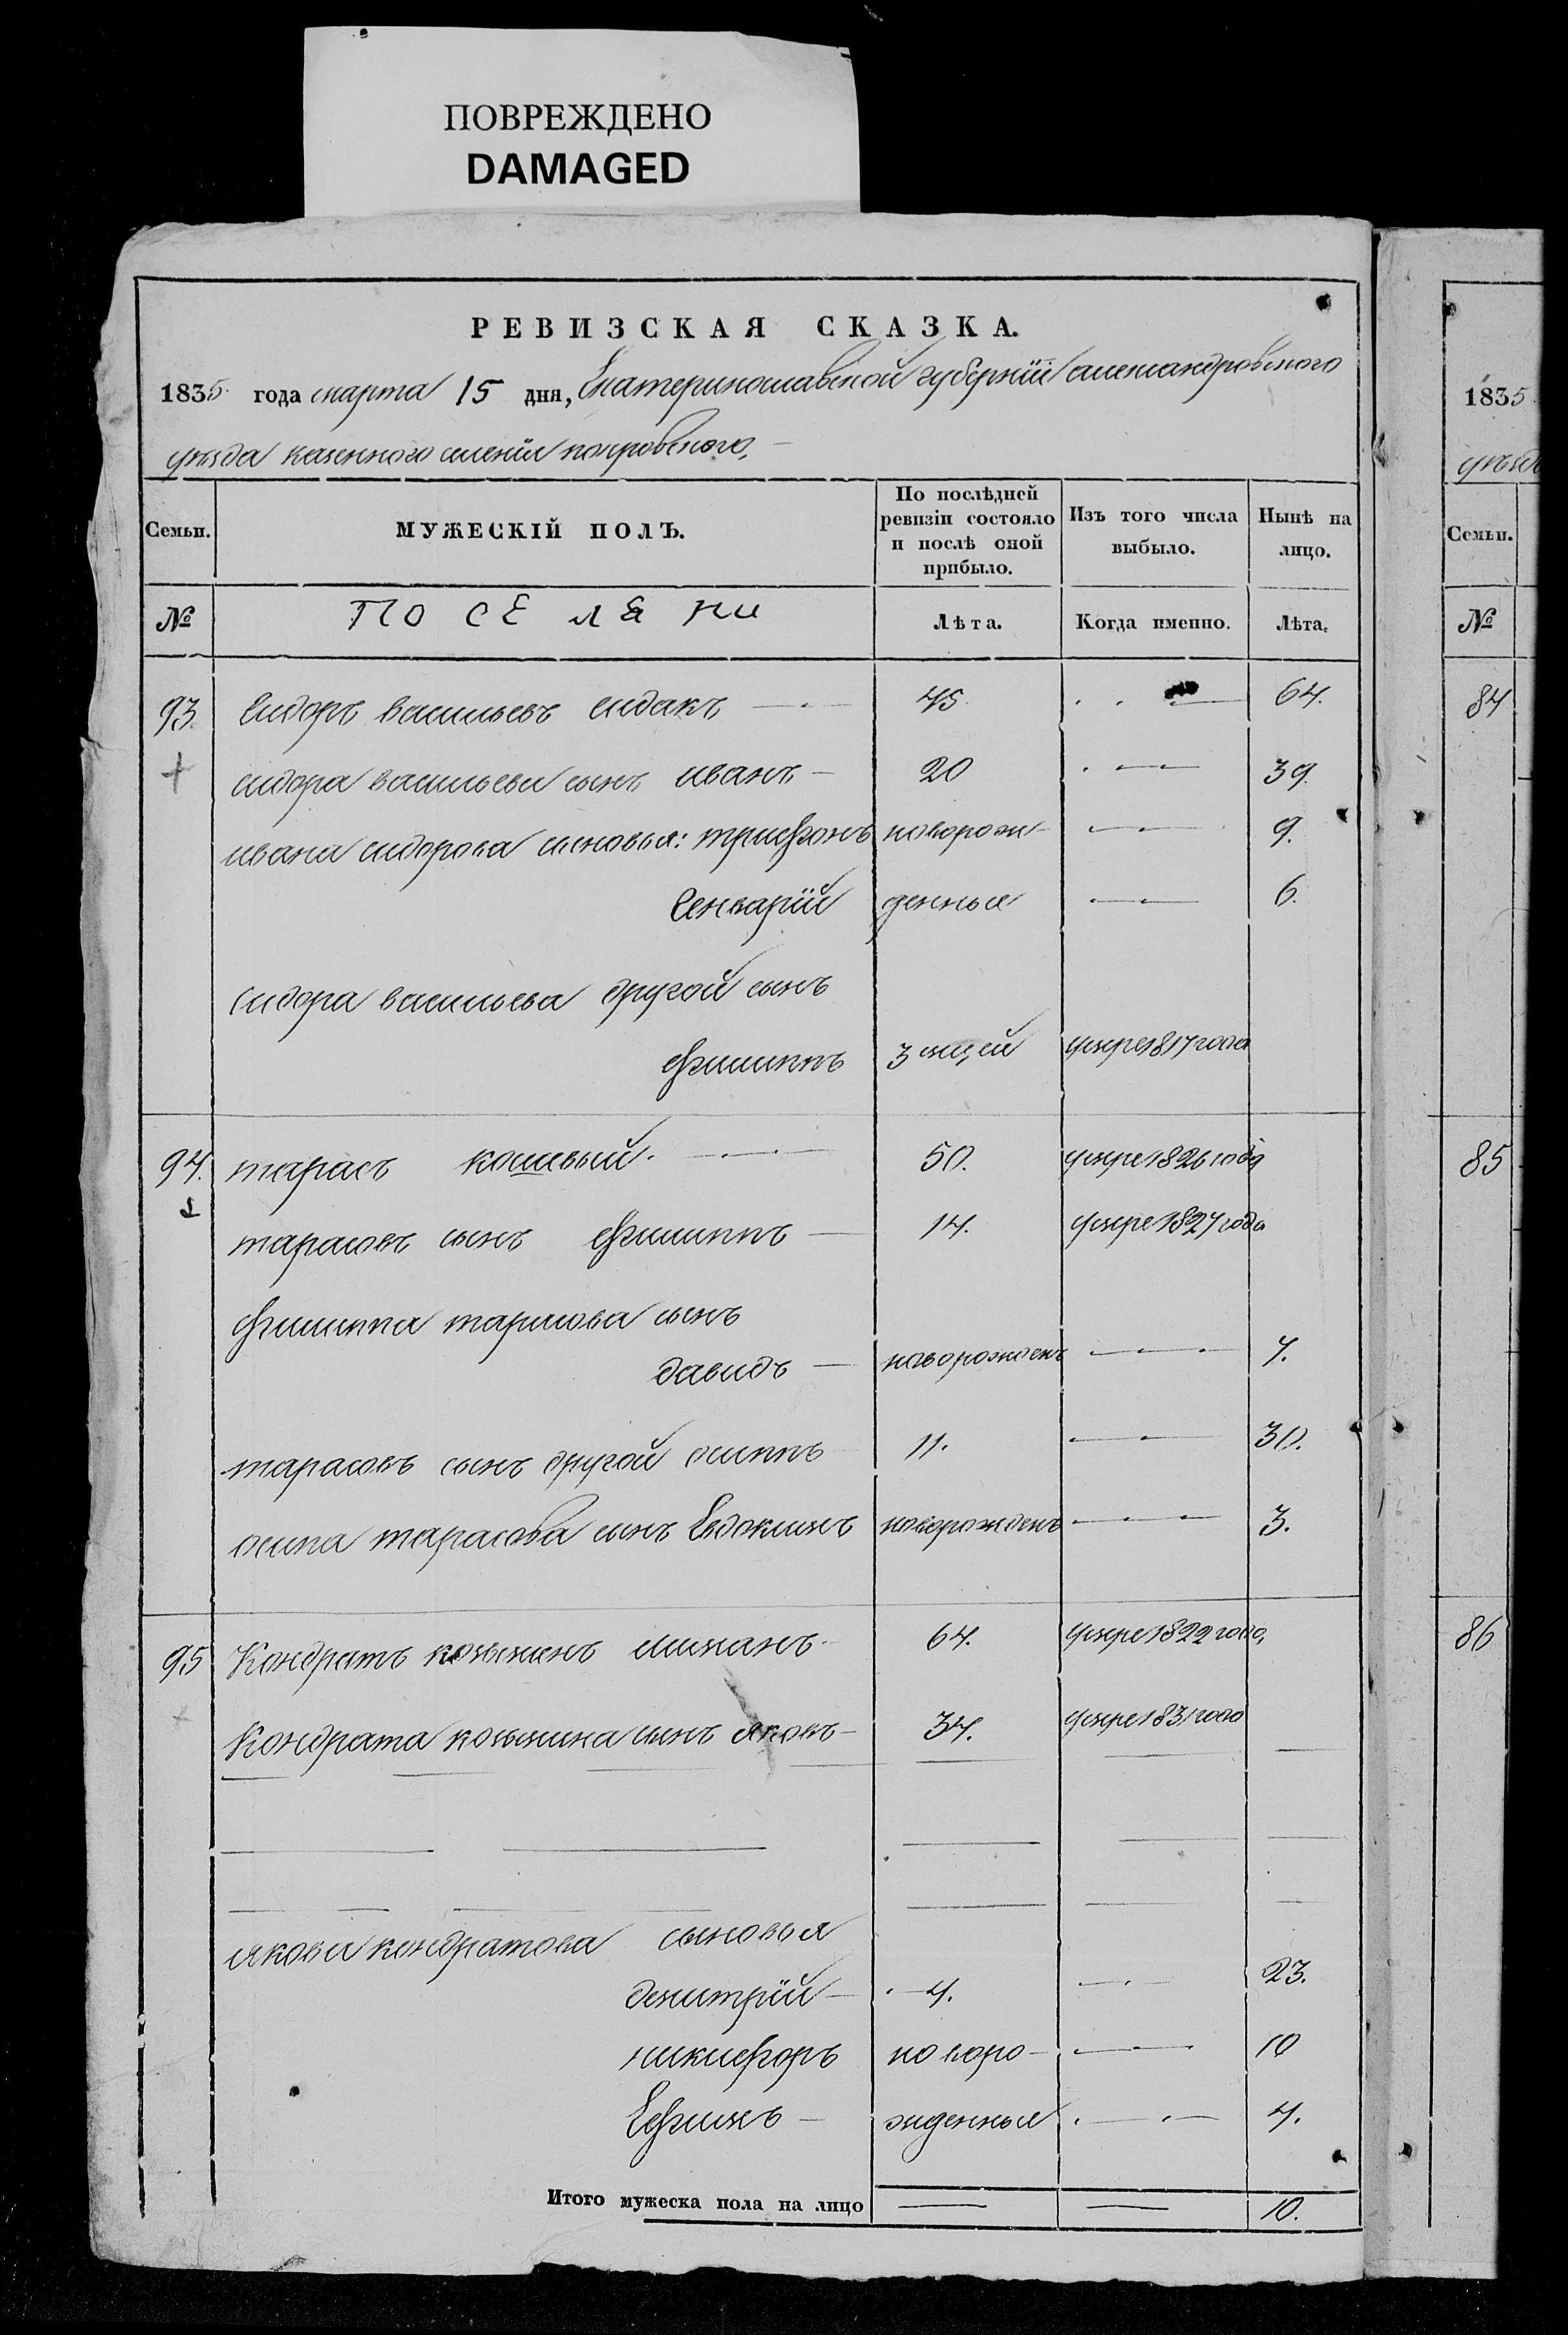 ПОВРЕЖДЕНО
DAMAGED
РЕВИЗСКАЯ СКАЗКА.
1835 года марта 15 дня, Екатеринославской губернїи александровского
уѣзда казенного селенїя покровского,
Семьи. МУЖЕСКІЙ ПОЛЪ. По послѣдней ревизіи состояло и послѣ оной прибыло. Изъ того числа выбыло. Нынѣ на лицо.
№ ПОСЕЛЯНИ Лѣта. Когда именно. Лѣта.
93 Сидоръ васильевъ сидакъ 45 64.
сидора васильева сынъ иванъ 20 39.
ивана сидорова сыновья: трифонъ новорож 9.
Сенварїй денные 6.
Сидора васильева другой сынъ
филиппъ 3 мцей умре 1817 года
94. тарасъ кошевый. 50. умре 1826 года
тарасовъ сынъ филиппъ 14. умре 1827 года
филиппа тарасова сынъ
давидъ новорожденъ 7.
тарасовъ сынъ другой осипъ 11. 30.
осипа тарасова сынъ Евдокимъ новорожденъ 3.
95 Кондратъ козьминъ 64. умре 1822 года,
Кондрата козьмина сынъ яковъ 34. умре 1831 года
якова кондратова сыновья
демитрїй 4. 23.
никифоръ новоро 10
Ефимъ жденные 4.
Итого мужеска пола на лицо 10.
1835
уѣзд
Семьи.
№
84
85
86